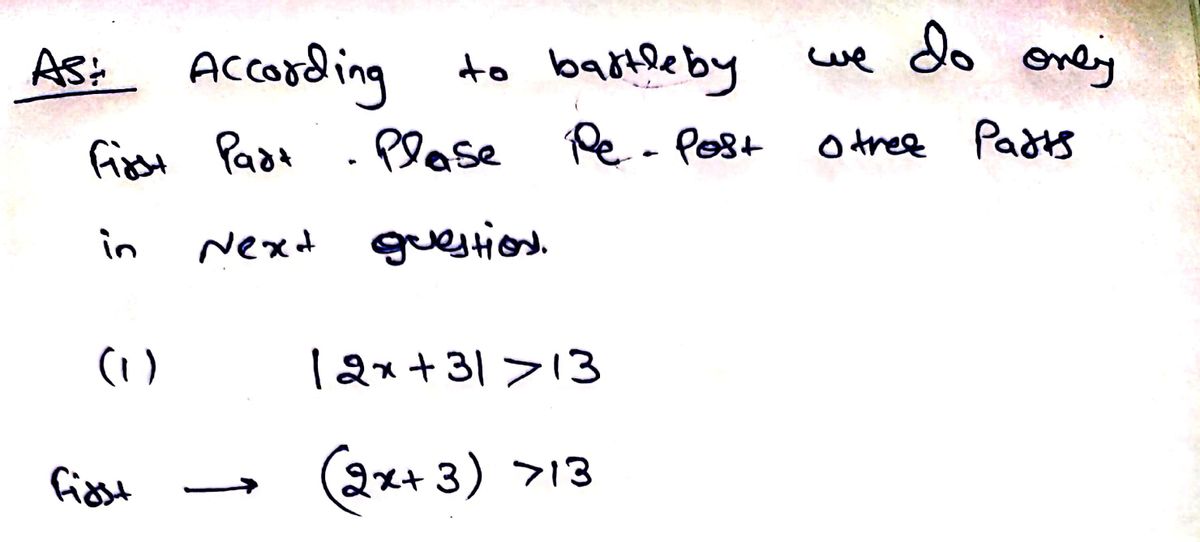 AS:- According to bartleby we do only
first Part . Plase Re - Post otree Parts
in Next question.
(1) |2x+3| >13
first → (2x+3) >13